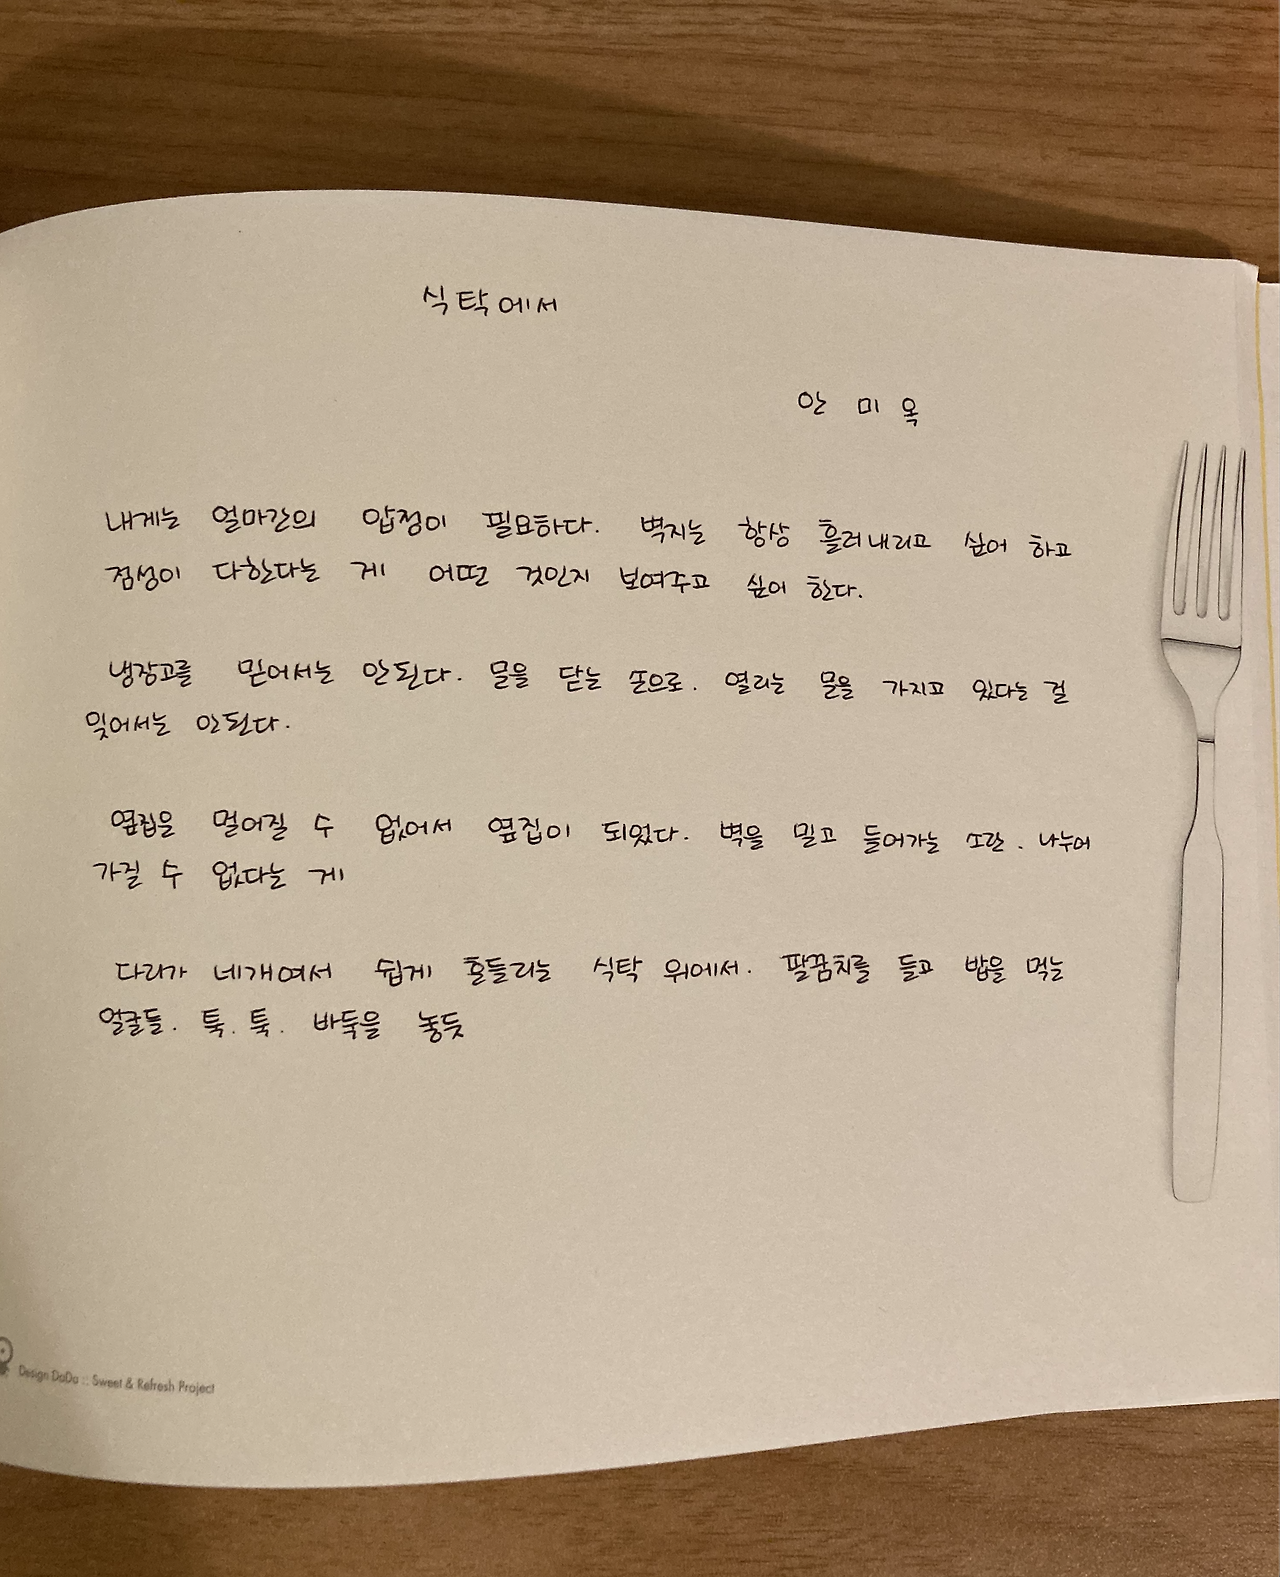 식탁에서
안 미 옥
내게는 얼마간의 압정이 필요하다. 벽지는 항상 흘러내리고 싶어 하고
점성이 다한다는 게 어떤 것인지 보여주고 싶어 한다.
냉장고를 믿어서는 안된다. 문을 닫는 손으로. 열리는 문을 가지고 있다는 걸
잊어서는 안된다.
옆집은 멀어질 수 없어서 옆집이 되었다. 벽을 밀고 들어가는 소란. 나누어
가질 수 없다는 게
다리가 네개여서 쉽게 흔들리는 식탁 위에서. 팔꿈치를 들고 밥을 먹는
얼굴들. 툭. 툭. 바둑을 놓듯
Design DaDa :: Sweet & Refresh Project